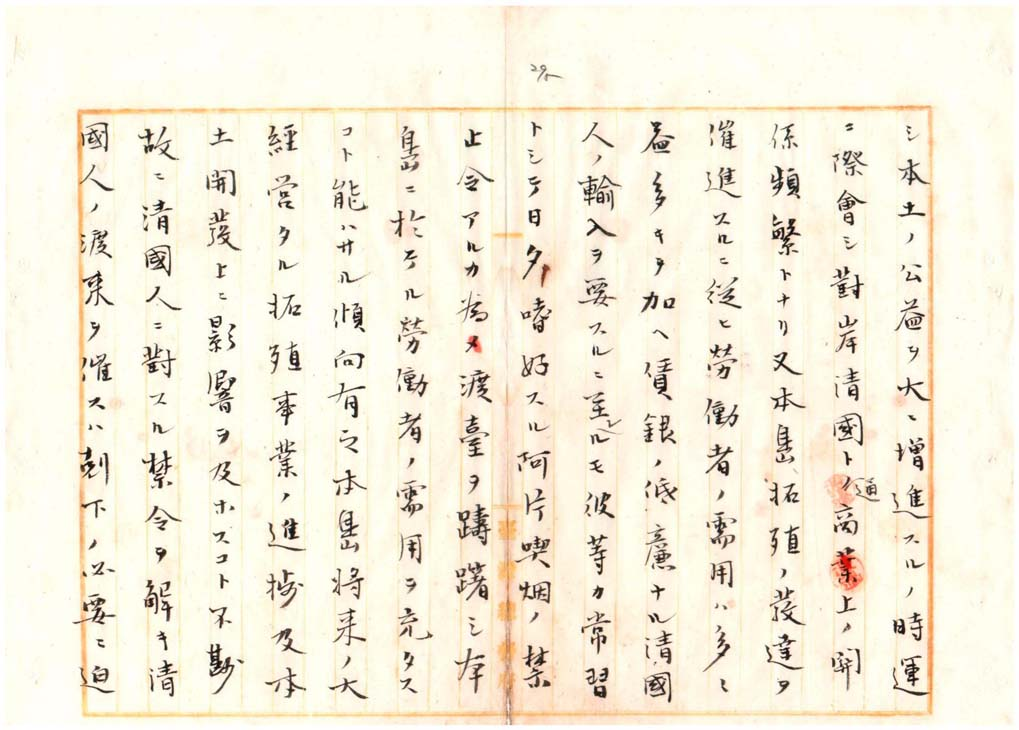 29
シ本土ノ公益ヲ大ニ增進スルノ時運
ニ際會シ對岸淸國トノ通商業上ノ關
係頻繁トナリ又本島拓殖ノ發達ヲ
催進スルニ従ヒ勞働者ノ需用ハ多々
益多キヲ加ヘ賃銀ノ低廉ナル淸國
人ノ輸入ヲ要スルニ至ルモ彼等カ常習
トシテ日夕嗜好スル阿片喫烟ノ禁
止令アルカ為メ渡臺ヲ躊躇シ本
島ニ於テル勞働者ノ需用ヲ充タス
コト能ハサル傾向有之本島將来ノ大
經営タル拓殖事業ノ進捗及本
土開發上ニ影響ヲ及ホスコト不尠
故ニ清國人ニ對スル禁令ヲ解キ清
國人ノ渡来ヲ催スハ刻下ノ必要ニ迫